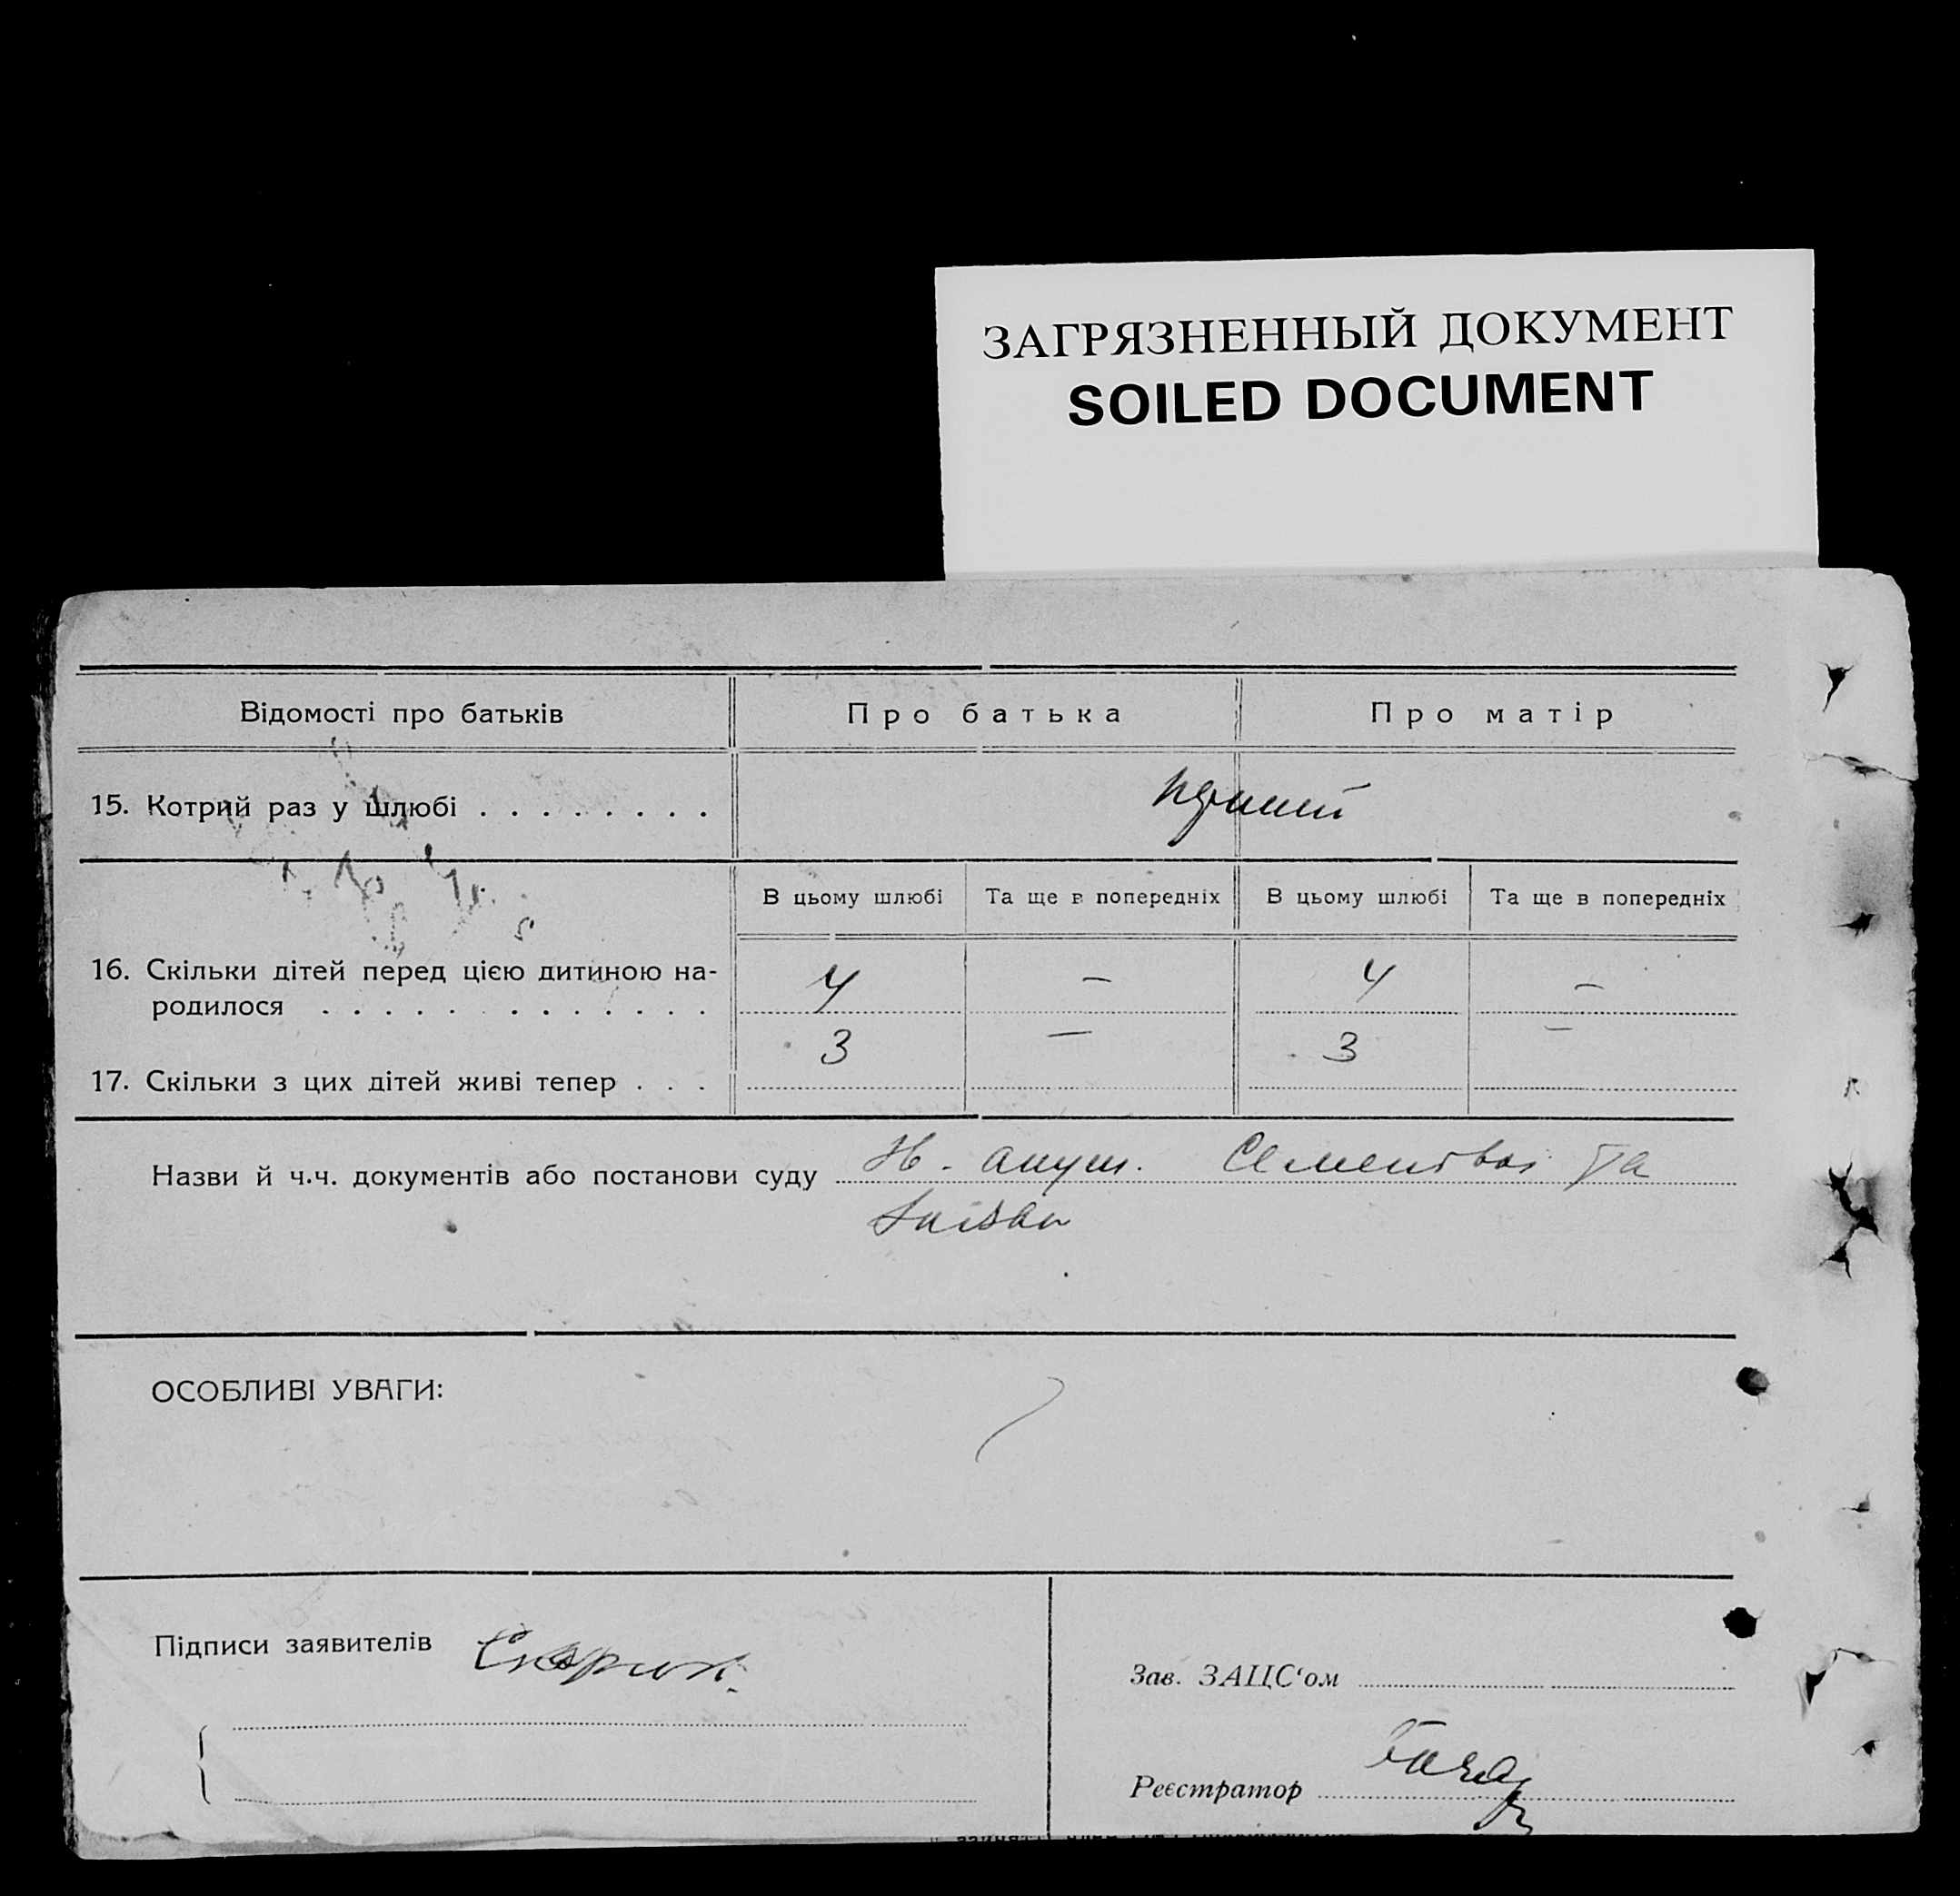 ЗАГРЯЗНЕННЫЙ ДОКУМЕНТ
SOILED DOCUMENT
Відомості про батьків
Про батька
Про матір
15. Котрий раз у шлюбі . . . . . . . .
В цьому шлюбі
Та ще в попередніх
В цьому шлюбі
Та ще в попередніх
16. Скільки дітей перед цією дитиною на-
родилося . . . . . . . . . . . . .
4 – 4 –
17. Скільки з цих дітей живі тепер . . .
3 – 3 –
Назви й ч.ч. документів або постанови суду
та
ОСОБЛИВІ УВАГИ:
Підписи заявителів
Зав. ЗАЦС‘ом
Реєстратор